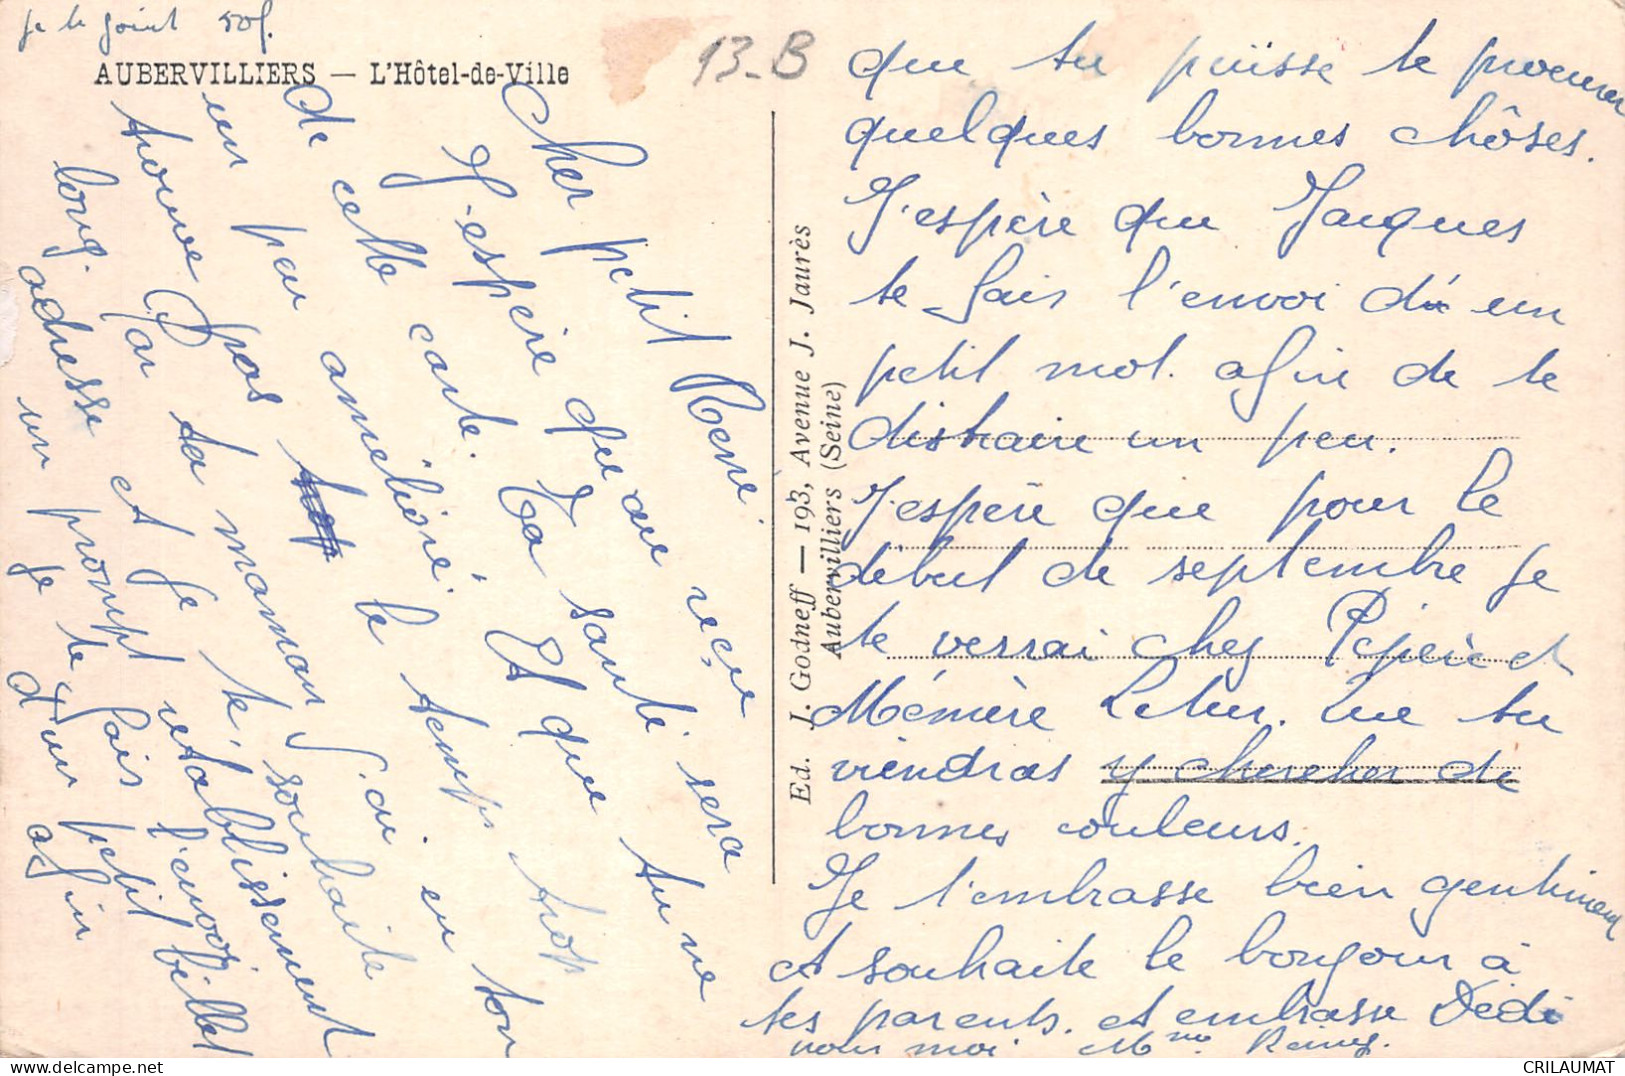 je te joint 50f.
AUBERVILLIERS — L'Hôtel-de-Ville
13-B
Cher petit René.
J'espère que au reçue
de cette carte. Ta santé sera
un peu améliorié. Et que tu ne
trouve pas le temps trop
long. Par ta maman J'ai eu ton
adresse et je te souhaite
un prompt rétablissement
je te fais l'envoi
d'un petit billet
afin
que tu puïsse te procurer
quelques bonnes chôses.
J'espère que Jacques
te fais l'envoi d'un
petit mot. afin de te
distraire un peu.
J'espère que pour le
début de septembre je
te verrai chez Pépère et
Mémère. Que tu
viendras y chercher de
bonnes couleurs.
Je t'embrasse bien gentiment
et souhaite le bonjour à
tes parents. et embrasse Dédé
pour moi. Mme
Ed. J. Godneff — 193, Avenue J. Jaurès
Aubervilliers (Seine)
CRILAUMAT